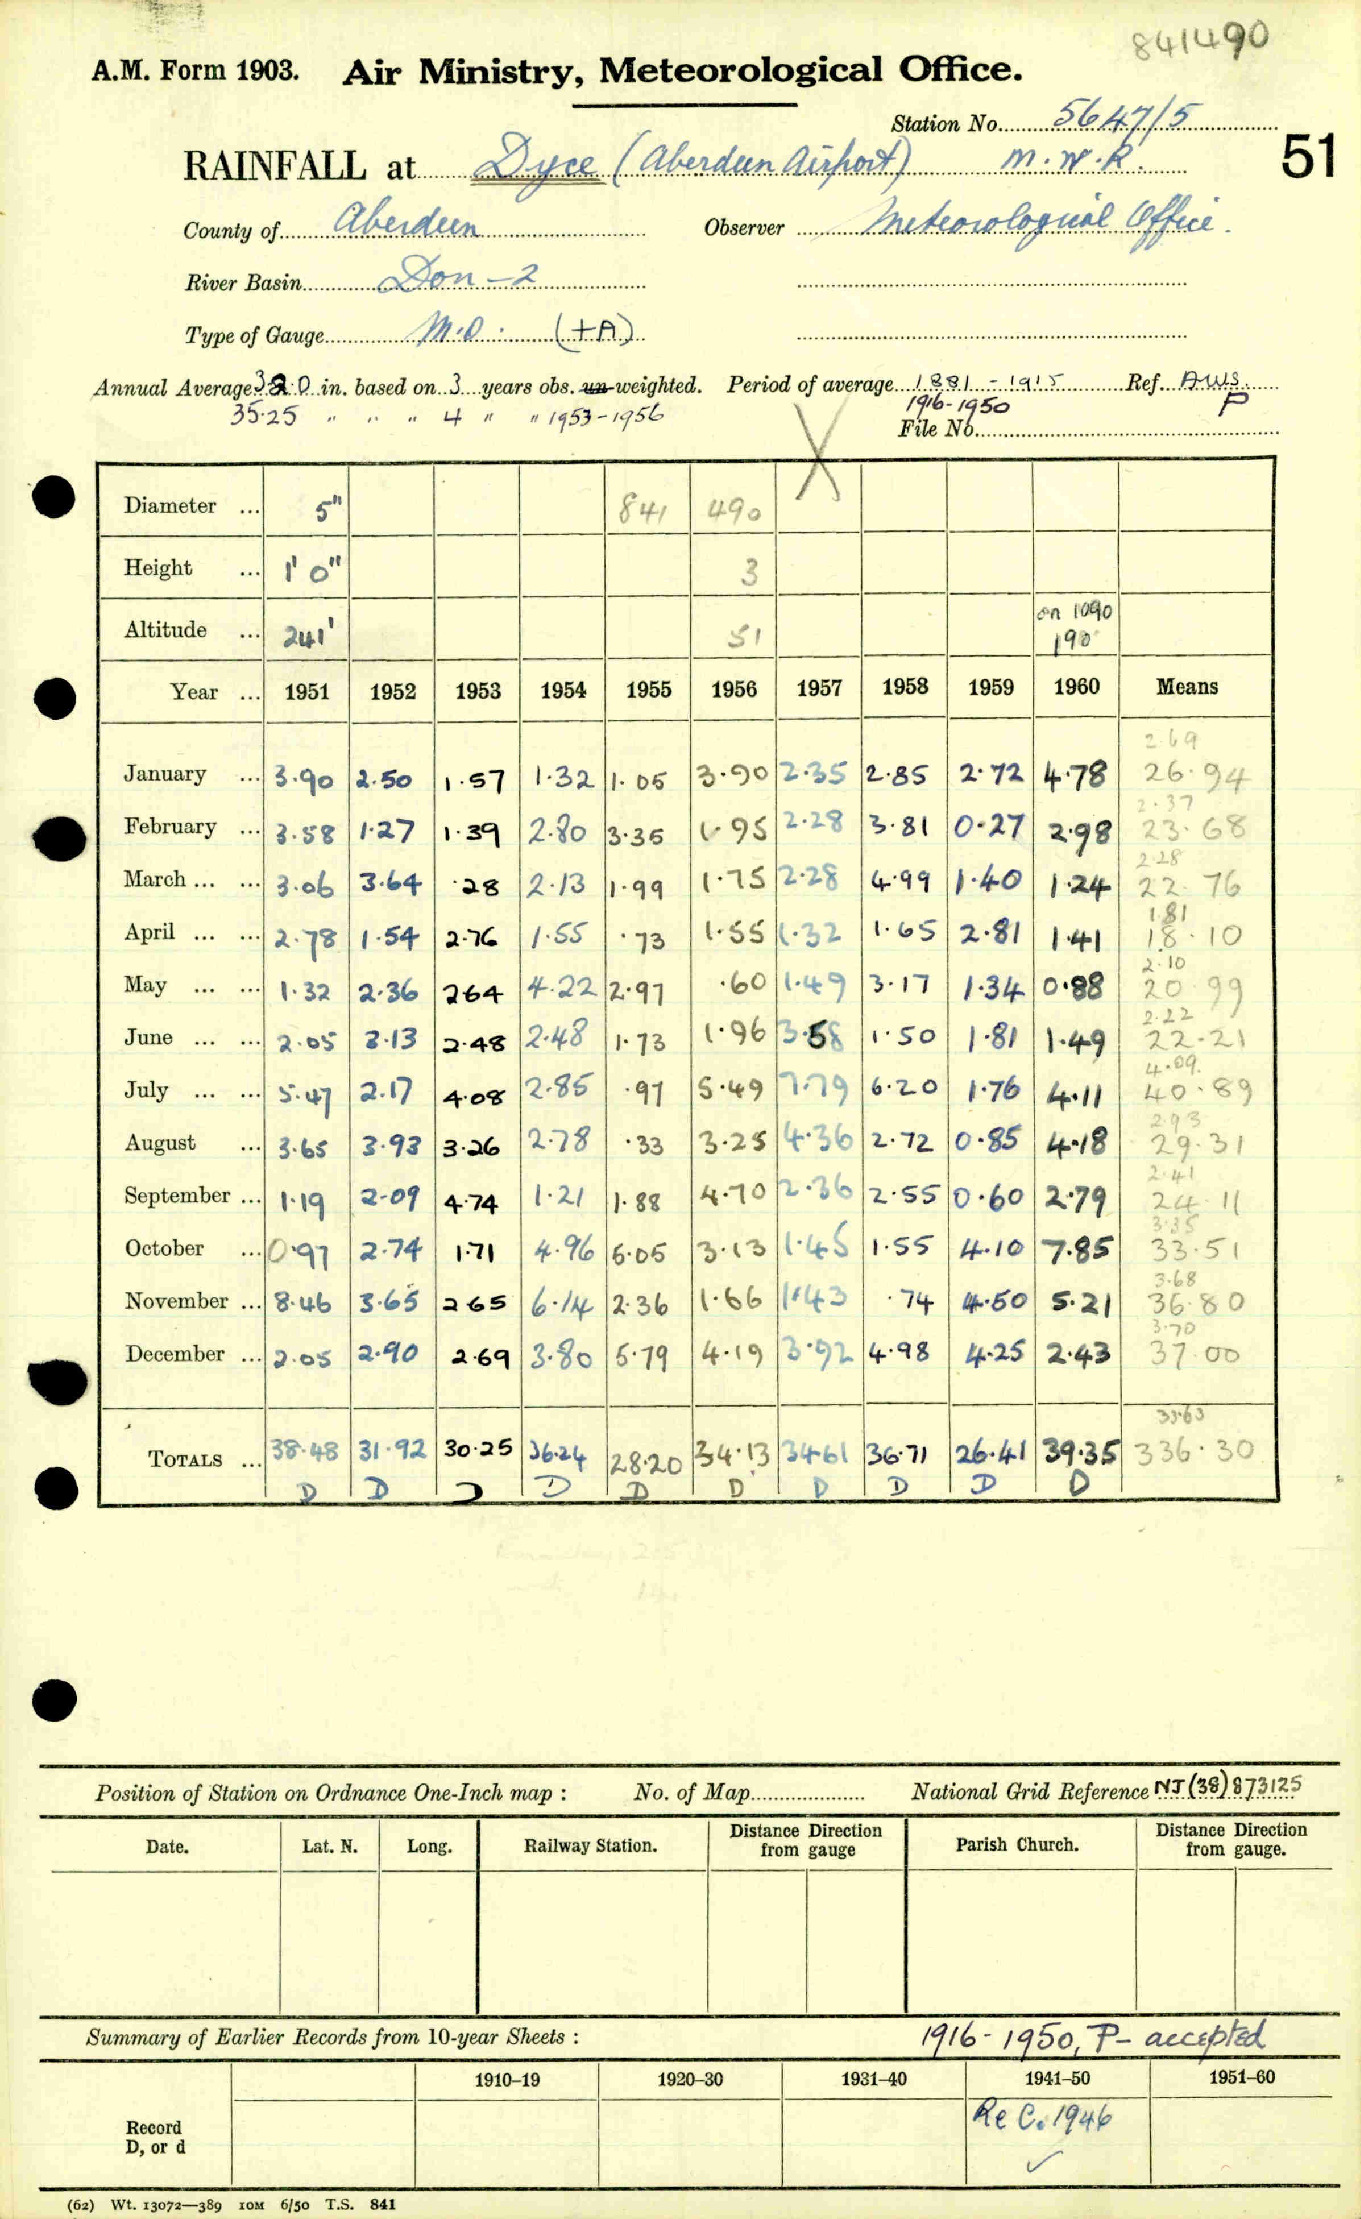 841490
A.M. Form 1903. Air Ministry, Meteorological Office.
Station No. 5647/5
RAINFALL at Dyce (Aberdeen Airport) M.W.R. 51
County of Aberdeen Observer Meteorological Office.
River Basin Don - 2
Type of Gauge M.O. (+A)
Annual Average in. based on 3 years obs. un-weighted. Period of average 1881 - 1915 Ref. AWS.
35.25 " " " 4 " " 1953-1956 1916-1950 P
File No.
Diameter ... 5" 841 490
Height ... 1' 0" 3
Altitude ... 241' 51 on 1090 190
Year ... 1951 1952 1953 1954 1955 1956 1957 1958 1959 1960 Means
2.69
January ... 3.90 2.50 1.57 1.32 1.05 3.90 2.35 2.85 2.72 4.78 26.94
2.37
February ... 3.58 1.27 1.39 2.80 3.35 1.95 2.28 3.81 0.27 2.98 23.68
2.28
March ... ... 3.06 3.64 .28 2.13 1.99 1.75 2.28 4.99 1.40 1.24 22.76
1.81
April ... ... 2.78 1.54 2.76 1.55 .73 1.55 1.32 1.65 2.81 1.41 18.10
2.10
May ... ... 1.32 2.36 2.64 4.22 2.97 .60 1.49 3.17 1.34 0.88 20.99
2.22
June ... ... 2.05 3.13 2.48 2.48 1.73 1.96 3.58 1.50 1.81 1.49 22.21
4.09
July ... ... 5.47 2.17 4.08 2.85 .97 5.49 7.79 6.20 1.76 4.11 40.89
2.93
August ... 3.65 3.93 3.26 2.78 .33 3.25 4.36 2.72 0.85 4.18 29.31
2.41
September ... 1.19 2.09 4.74 1.21 1.88 4.70 2.36 2.55 0.60 2.79 24.11
3.35
October ... 0.97 2.74 1.71 4.96 5.05 3.13 1.45 1.55 4.10 7.85 33.51
3.68
November ... 8.46 3.65 2.65 6.14 2.36 1.66 1.43 .74 4.50 5.21 36.80
3.70
December ... 2.05 2.90 2.69 3.80 5.79 4.19 3.92 4.98 4.25 2.43 37.00
33.63
TOTALS ... 38.48 31.92 30.25 36.24 28.20 34.13 34.61 36.71 26.41 39.35 336.30
D D D D D D D D D D
Position of Station on Ordnance One-Inch map : No. of Map National Grid Reference NJ (38) 873125
Date. Lat. N. Long. Railway Station. Distance Direction from gauge Parish Church. Distance Direction from gauge.
Summary of Earlier Records from 10-year Sheets : 1916 - 1950, P - accepted
1910–19 1920–30 1931–40 1941–50 1951–60
Record D, or d Re C. 1946 ✓
(62) Wt. 13072—389 10M 6/50 T.S. 841